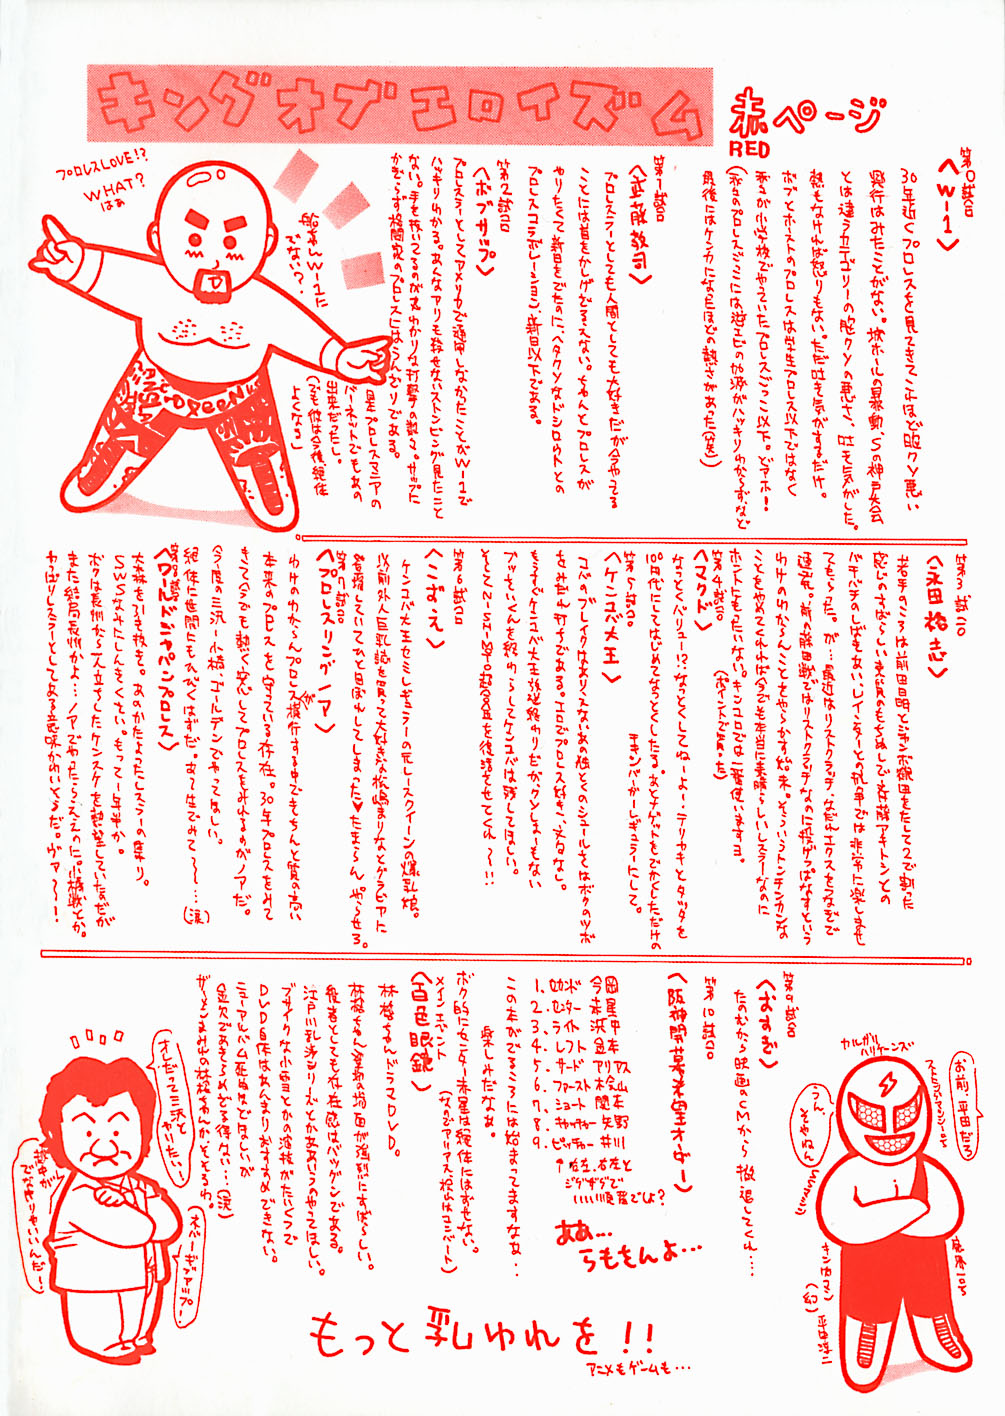 キングオブエロイズム
赤ページ
RED
第0試合
〈W-1〉
30年近くプロレスを見てきてこれほど胸クソ悪い
興行はみたことがない。横浜ホールの暴動、Sの神戸大会
とは違うカテゴリーの胸クソの悪さ、吐き気がした。
熱もなければ怒りもない。ただ吐き気がするだけ。
ボブとホーストのプロレスは学生プロレス以下ではなく
我々が小学校でやっていたプロレスごっこ以下。どアホ!
(我々のプロレスごっこには逆エビの加減がハッキリわからず、など
最後にはケンカになるほどの熱さがあった(笑))
第1試合
〈武藤敬司〉
プロレスラーとしても人間としても大好きだが今やってる
ことには首をかしげざるえない。ちゃんとプロレスが
やりたくて新日をでたのに、ヘタクソなドシロウトとの
プロレスコラボレーション。新日以下である。
第2試合
〈ボブサップ〉
プロレスラーとしてアメリカで通用しなかったことがW-1で
ハッキリわかる。あんなアリも殺せないストンピング見たこと
ない。手を抜いてくるのが丸わかりな打撃の数々。サップに
かぎらず格闘家のプロレスにはうんざりである。
プロレスLOVE!?
WHAT?
はぁ
船木さんW-1に
でない?
是非プロレスマニアの
バーネットでもあの
出来だったし。
(でも彼は今後絶住
よくなる)
第3試合
〈永田裕志〉
若手のころは前田日明とジャンボ鶴田をたして2で割った
感じのすばらしい素質のもちぬしで斉藤アキトシとの
バチバチのしばきあい、レインジャーとの抗争では非常に楽しませ
てもらった。が…最近はリストクラッチ、なだれエクスをつなぎで
連発。前の藤田戦ではリストクラッチなのに投げっぱなすという
わけのわからんことをやらかす始末。そういうトンチンカンな
ことをやめてくれれば今でも本当に素晴らしいレスラーなのに
第4試合
〈マクド〉
ホントにもったいない。キン肉エロでは一番使いますョ。
(ポイントで買った)
なっとくバリュー!?なっとくしてねーよーテリヤキとタツタを
100円代にしてはじめてなっとくしたる。あとナゲットをでかくしただけの
チキンバーガーレギュラーにして。
第5試合
〈ケンコバ大王〉
コバのブレイクはまよりくないあの他とくのシュールさとはボクのツボ
もうすぐケンコバ大王放送終わりだがクソしょーもない
ブッさいくんを終わらしてケンコバは残してほしい。
そしてN-SHOP超合金を復活させてくれ〜!!
第6試合
〈こずえ〉
ケンコバ大王セミレギュラーの元レースクイーンの爆乳娘。
以前外人巨乳誌を買って大好きな松嶋まりなとグラビアに
登場していてひと目ぼれしてしまった♥たまら〜ん。やらせろ。
第7試合
〈プロレスリングノア〉
わけのわからんプロレスが横行する中でもちゃんと質の高い
本来のプロレスを守っている存在。30年プロレスをみて
きて今でも熱く安心してプロレスをみれるのがノアだ。
今度の三沢-小橋、ゴールデンでやってほしい。
絶体に世間にもひびくはずだ。あー生でみて〜〜…(涙)
第8試合
〈ワールドジャパンプロレス〉
大森を引き抜き。あのかたよったレスラーの集り。
SWSなみにしんきくさい。もって一年半か。
ボクは長州から一人立ちしたケンスケを熱望していたのだが
また結局長州かよ…ノアでやったらええのに。小橋戦とか。
やはりレスラーとしてある意味かわいそうだ。ヴァ〜〜!
第9試合
〈おすぎ〉
たのむから映画のCMから撤退してくれ……
第10試合
〈阪神開幕希望オーダー〉
1. セカンド 今岡
2. センター 赤星
3. ライト 浜中
4. レフト 金本
5. サード アリアス
6. ファースト 桧山
7. ショート 関本
8. キャッチャー 矢野
9. ピッチャー 井川
↑右左、右左と
ジグザグで
いい順番でしょ?
ああ…
らももさんよ…
この本がでるころには始まってますなぁ‥
楽しみだなぁ。
ボク的に女房と赤星は絶体にはずせない。
メインエベント
〈百色眼鏡〉
林檎ちゃんドラマDVD。
林檎ちゃん筆おろし場面が強烈にすばらしい。
役者としても存在感はバツグンである。
江戸川乱歩シリーズとかああいうのやってほしい。
ブサイクな小雪とかの演技がたいくつで
DVD自体はあんまりおすすめできない。
ニューアルバム死ぬほどほしいが
金欠であきらめざる得ない…(涙)
ザーメンまみれの林檎ちゃんがそそるわ。
オレだって三沢と
やりたい〜!
越中が
でなきゃいいんだー!
ネバーギブアップ!
カルガリ
ハリケーンズ
お前、平田だろ
うん、
そやねん
もっと乳ゆれを!!
アニメもゲームも…